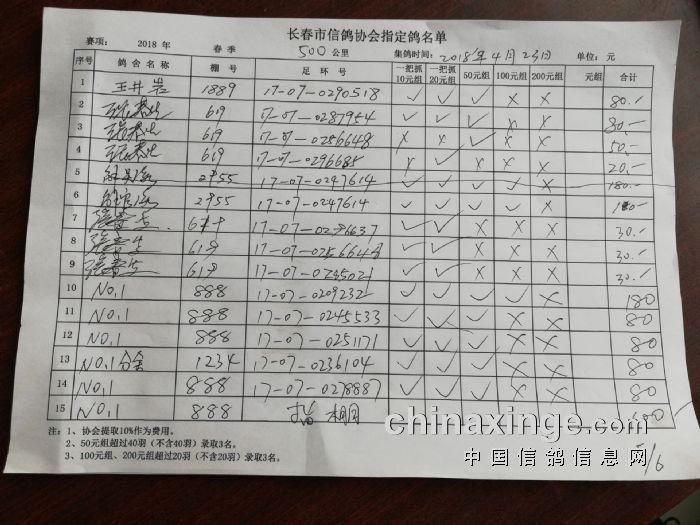 长春市信鸽协会指定鸽名单
赛项: 2018 年 春季 500 公里 集鸽时间: 2018年4月23日 单位: 元
序号 鸽舍名称 棚号 足环号 一把抓10元组 一把抓20元组 50元组 100元组 200元组 元组 合计
1 王井岩 1889 17-07-0290518 ✓ ✓ ✓ × × 80.-
2 619 17-07-0287954 ✓ ✓ ✓ × × 80.-
3 619 17-07-0256648 × × ✓ × × 50.-
4 619 17-07-0296685 × ✓ × × × 20.-
5 2955 17-07-0247614 ✓ ✓ ✓ ✓ × 180.-
6 2955 17-07-0247614 ✓ ✓ ✓ ✓ × 180.-
7 17-07-0286637 ✓ ✓ × × × 30.-
8 619 17-07-0256648 ✓ ✓ × × × 30.-
9 619 17-07-0245021 ✓ ✓ × × × 30.-
10 NO,1 888 17-07-0209232 ✓ ✓ ✓ ✓ × 180
11 NO,1 888 17-07-0245533 ✓ ✓ ✓ × × 80
12 NO,1 888 17-07-0251171 ✓ ✓ ✓ × × 80
13 NO,1分舍 1234 17-07-0236104 ✓ ✓ ✓ × × 80
14 NO,1 888 17-07-0278887 ✓ ✓ ✓ × × 80
15 NO,1 888
注: 1、协会提取10%作为费用。
2、50元组超过40羽(不含40羽)录取3名。
3、100元组、200元组超过20羽(不含20羽)录取3名。
chinaxinge.com
中国信鸽信息网